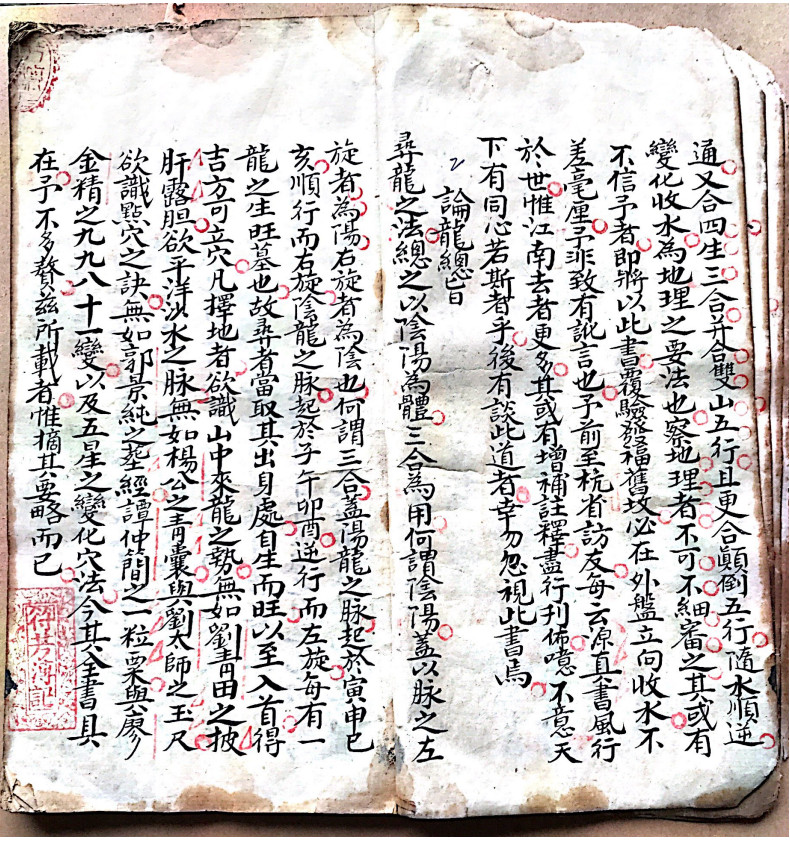 通又合四生三合并合雙山五行且更合顛倒五行隨水順逆
變化收水為地理之要法也察地理者不可不細審之其或有
不信予者即將以此書覆驗發福舊坟必在外盤立向收水不
差毫厘予非致有訛言也予前至杭省訪友每云源真書風行
於世惟江南去者更多其或有增補註釋盡行刊佈噫不意天
下有同心若斯者乎後有談此道者幸勿忽視此書焉
論龍總旨
尋龍之法總之以陰陽為體三合為用何謂陰陽蓋以脉之左
旋者為陽右旋者為陰也何謂三合蓋陽龍之脉起於寅申巳
亥順行而右旋陰龍之脉起於子午卯酉逆行而左旋每有一
龍之生旺墓也故尋者當取其出身處自生而旺以至入首得
吉方可立穴凡擇地者欲識山中來龍之勢無如劉青田之披
肝露胆欲平洋沙水之脉無如楊公之青囊與劉太師之玉尺
欲識點穴之訣無如郭景純之塟經譚仲簡之一粒粟與廖
金精之九九八十一變以及五星之變化穴法今其全書具
在予不多贅茲所載者惟摘其要略而已